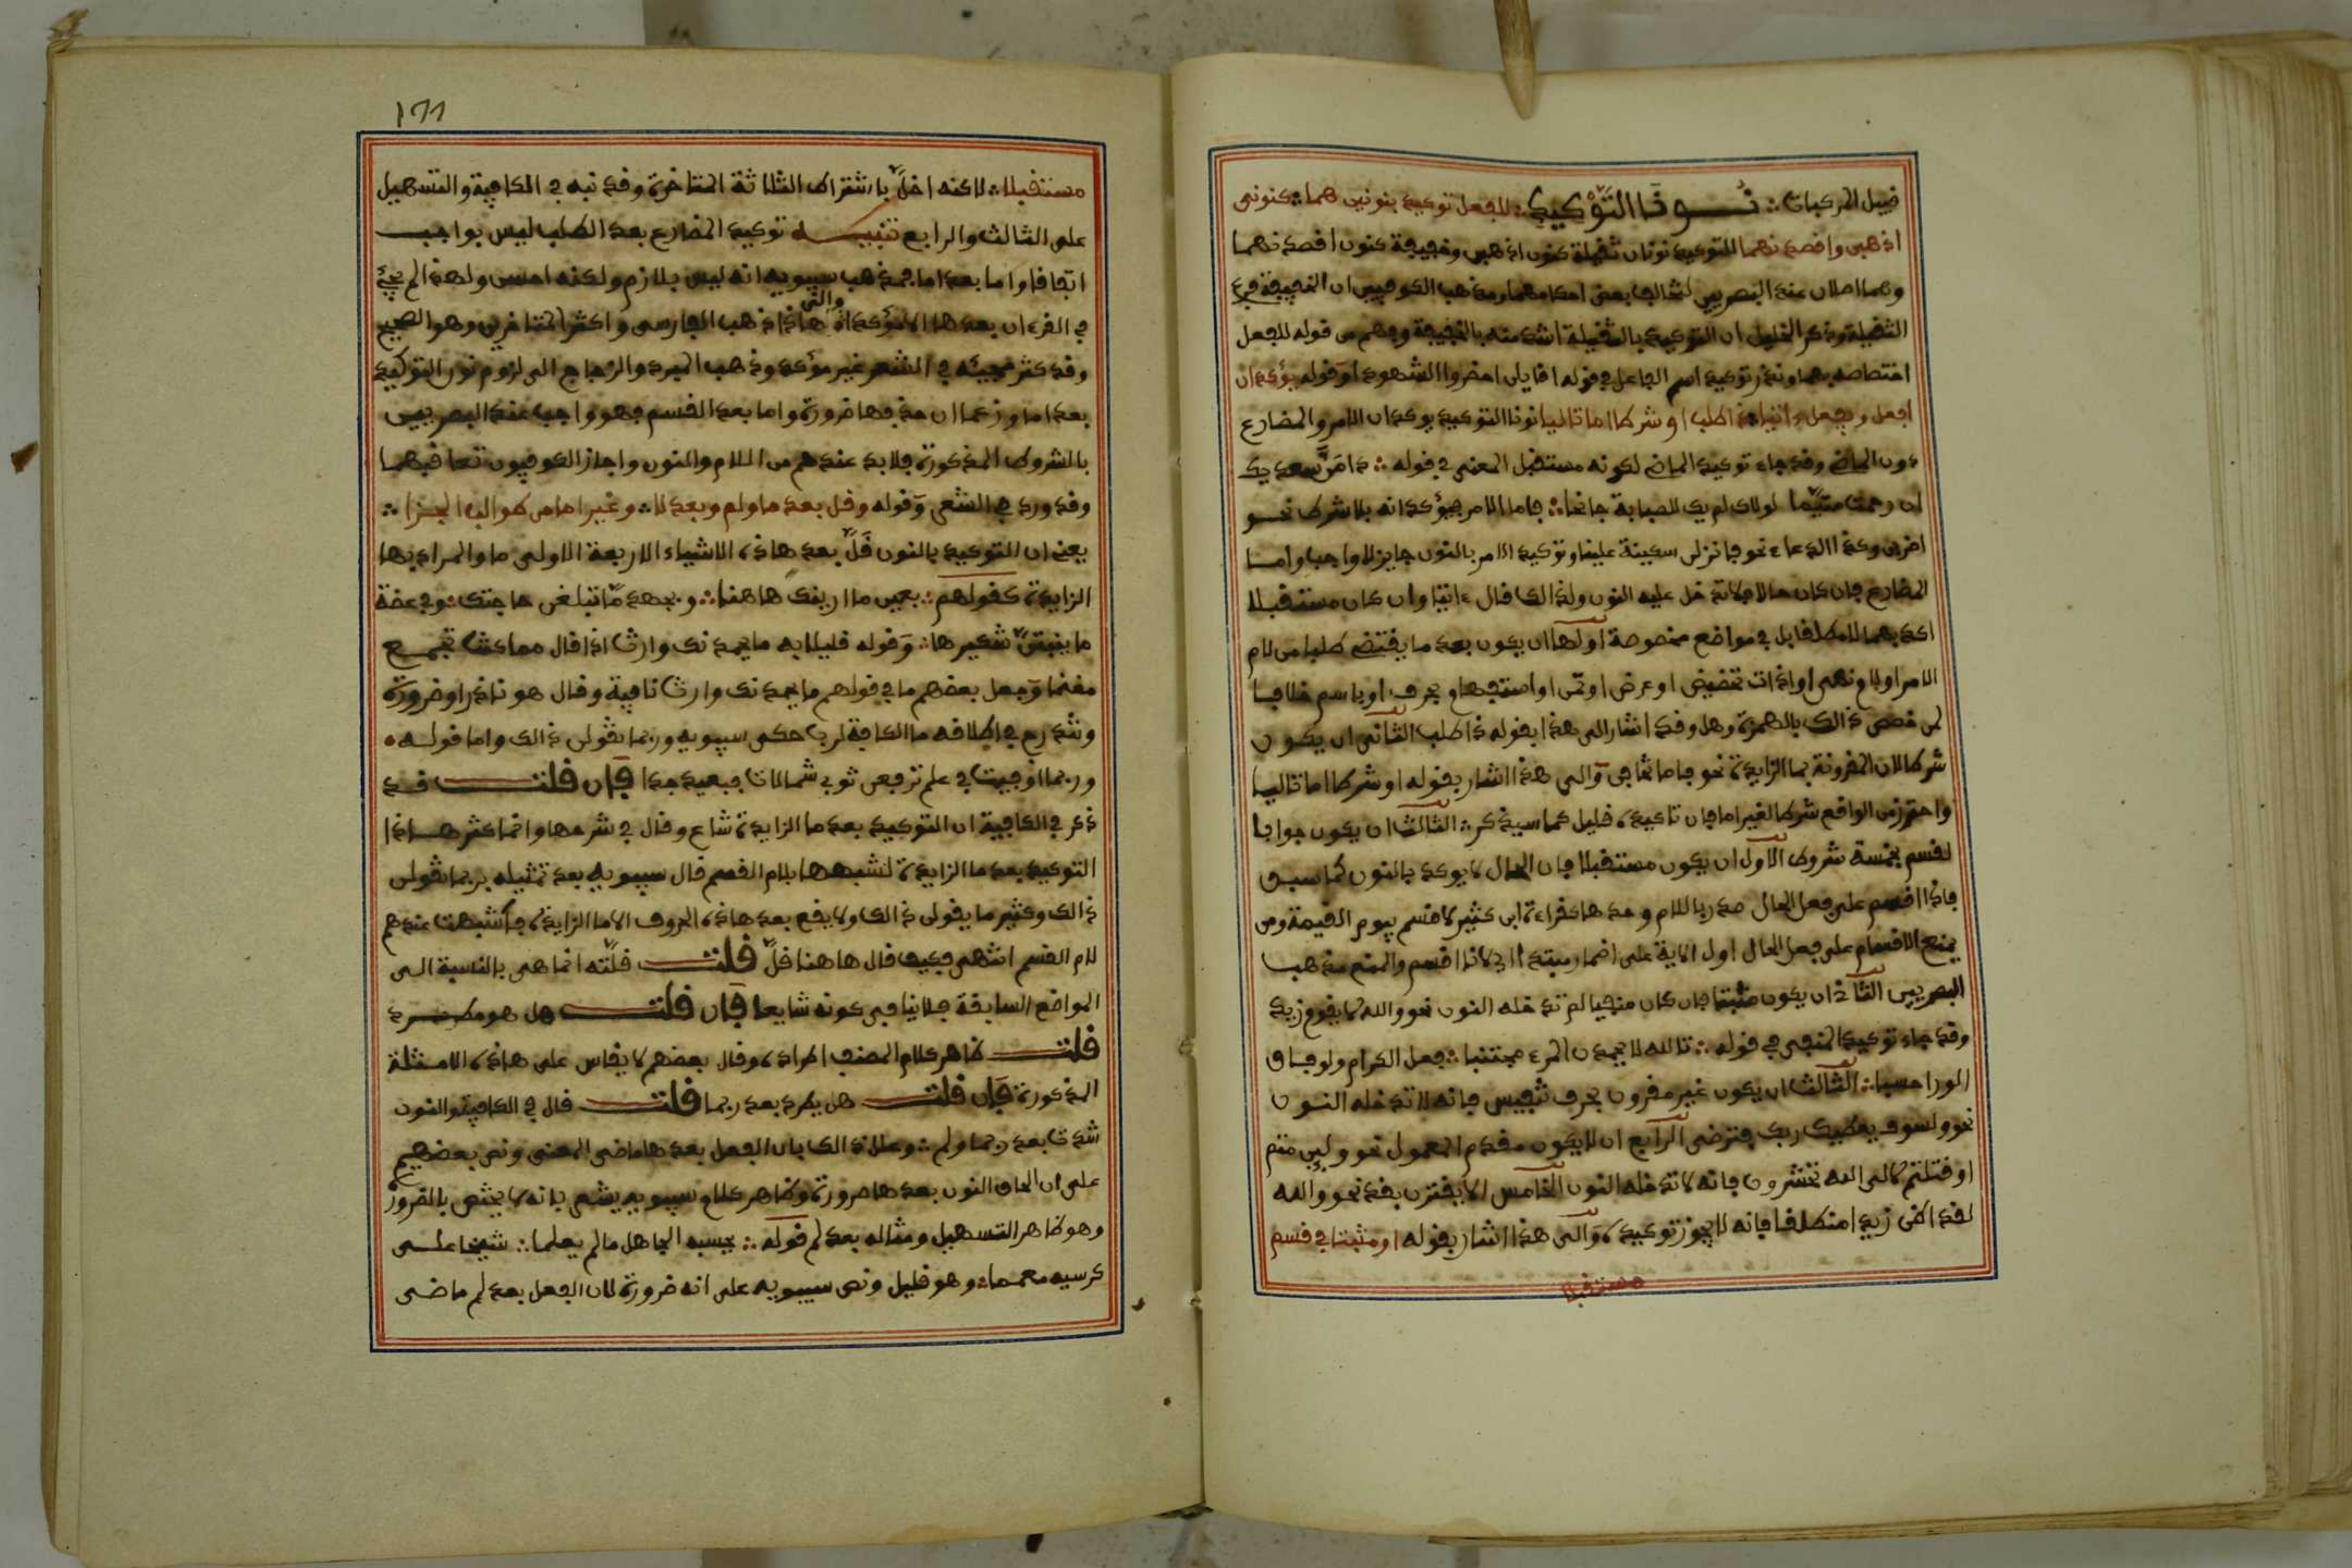 قبيل المركبات ∴ نونا التوكيد ∴ للفعل توكيد بنونين هما ∴ كنوني
اذهبن واقصدنهما للتوكيد نونان ثقيلة كنون اذهبن وخفيفة كنون اقصدنهما
وهما اصلان عند البصريين لتخالف بعض احكامهما ومذهب الكوفيين ان الخفيفة فرع
الثقيلة وذكر الخليل ان التوكيد بالثقيلة اشد منه بالخفيفة وفهم من قوله للفعل
اختصاصه بهما وندر توكيد اسم الفاعل في قوله اقايلن احضروا الشهودا وقوله يؤكدان
افعل ويفعل ءاتيا ذا طلب او شرطا اما تاليا نونا التوكيد يوكدان الامر والمضارع
دون الماضي وقد جاء توكيد الماضي لكونه مستقبل المعنى في قوله ∴ دامن سعدك
ان رحمت متيما لولاك لم يك للصبابة جانحا ∴ فاما الامر فيؤكدانه بلا شرط نحو
اضربن وكذا الدعاء نحو فانزلن سكينة علينا وتوكيد الامر بالنون جايز لا واجب واما
المضارع فان كان حالا لم تدخل عليه النون ولذالك قال ءاتيا وان كان مستقبلا
اكد بهما لا مطلقا بل في مواضع مخصوصة اولها ان يكون بعد ما يقتضي طلبا من لام
الامر اولا ونهى او اداة تحضيض او عرض او تمن او استفهام بحرف او باسم خلافا
لمن خصص ذالك بالهمزة وهل وقد اشار الى هذا بقوله ذا طلب الثاني ان يكون
شرطا لان المقرونة بما الزايدة نحو فاما تخافن والى هذا اشار بقوله او شرطا اما تاليا
واحترز من الواقع شرطا لغير اما فان تاكيده قليل كما سيذكر ∴ الثالث ان يكون جوابا
لقسم بخمسة شروط الاول ان يكون مستقبلا فان الحال لا يوكد بالنون كما سبق
فاذا اقسم على فعل الحال صدر باللام وحدها كقراءة ابن كثير لاقسم بيوم القيمة ومن
يمنع الاقسام على فعل الحال اول الاية على اضمار مبتدا اي لانا اقسم والمنع مذهب
البصريين الثاني ان يكون مثبتا فان كان منفيا لم تدخله النون نحو والله لا يقوم زيد
وقد جاء توكيد المنفى في قوله ∴ تالله لا يحمدن المرء مجتنبا ∴ فعل الكرام ولو فاق
الورا حسبا ∴ الثالث ان يكون غير مقرون بحرف تنفيس فانه لا تدخله النون
نحو ولسوف يعطيك ربك فترضى الرابع ان لا يكون مقدم المعمول نحو ولين متم
او قتلتم لالى الله تحشرون فانه لا تدخله النون الخامس الا يقترن بقد نحو والله
لقد اظن زيدا منطلقا فانه لا يجوز توكيده والى هذا اشار بقوله او مثبتا في قسم
مستقبلا
١٦٦
مستقبلا ∴ لاكنه اخل باشتراط الثلاثة المتاخرة وقد نبه في الكافية والتسهيل
على الثالث والرابع تنبيه توكيد المضارع بعد الطلب ليس بواجب
اتفاقا واما بعد اما فمذهب سيبويه انه ليس بلازم ولكنه احسن ولهذا لم يجئ
في القرءان بعدها الا مؤكدا والى هاذا ذهب الفارسى واكثر المتاخرين وهو الصحيح
وقد كثر مجيئه في الشعر غير مؤكد وذهب المبرد والزجاج الى لزوم نون التوكيد
بعد اما وزعما ان حذفها ضرورة واما بعد القسم فهو واجب عند البصريين
بالشروط المذكورة فلا بد عندهم من اللام والنون واجاز الكوفيون تعاقبهما
وقد ورد في الشعر وقوله وقل بعد ما ولم وبعد لا ∴ وغير اما من طوالب الجزا ∴
يعني ان التوكيد بالنون قل بعد هاذه الاشياء الاربعة الاولى ما والمراد بها
الزايدة كقولهم ∴ بعين ما ارينك هاهنا ∴ وبجهد ما تبلغن حاجتك ∴ وفي عضة
ما ينبتن شكيرها ∴ وقوله قليلا به ما يحمدنك وارث اذا قال مما كنت تجمع
مغنما وجعل بعضهم ما في قولهم ما يحمدنك وارث نافية وقال هو نادر او ضرورة
ويندرج في اطلاقه ما الكافة لرب حكى سيبويه وربما تقولن ذالك واما قوله
وربما اوفيت في علم ترفعن ثوبي شمالات فبعيد جدا فان قلت قد
ذكر في الكافية ان التوكيد بعد ما الزايدة شاع وقال في شرحها وانما كثر هاذا
التوكيد بعد ما الزايدة لشبهها بلام القسم قال سيبويه بعد تمثيله بربما تقولن
ذالك وكثير ما يقولن ذالك ولا يقع بعد هاذه الحروف الا ما الزايدة فاشبهت عندهم
لام القسم انتهى فكيف قال هاهنا قل قلت قلته انما هي بالنسبة الى
المواضع السابقة فلا ينافي كونه شايعا فان قلت هل هو مطرد
قلت ظاهر كلام المصنف اطراده وقال بعضهم لا يقاس على هاذه الامثلة
المذكورة فان قلت هل يطرد بعد ربما قلت قال في الكافية والنون
شذت بعد ربما ولم ∴ وعلل ذالك بان الفعل بعدها ماضى المعنى ونص بعضهم
على ان الحاق النون بعدها ضرورة وظاهر كلام سيبويه يشعر بانه لا يختص بالضرورة
وهو ظاهر التسهيل ومثاله بعد لم قوله ∴ يحسبه الجاهل ما لم يعلما ∴ شيخا على
كرسيه معمما ∴ وهو قليل ونص سيبويه على انه ضرورة لان الفعل بعد لم ماضى